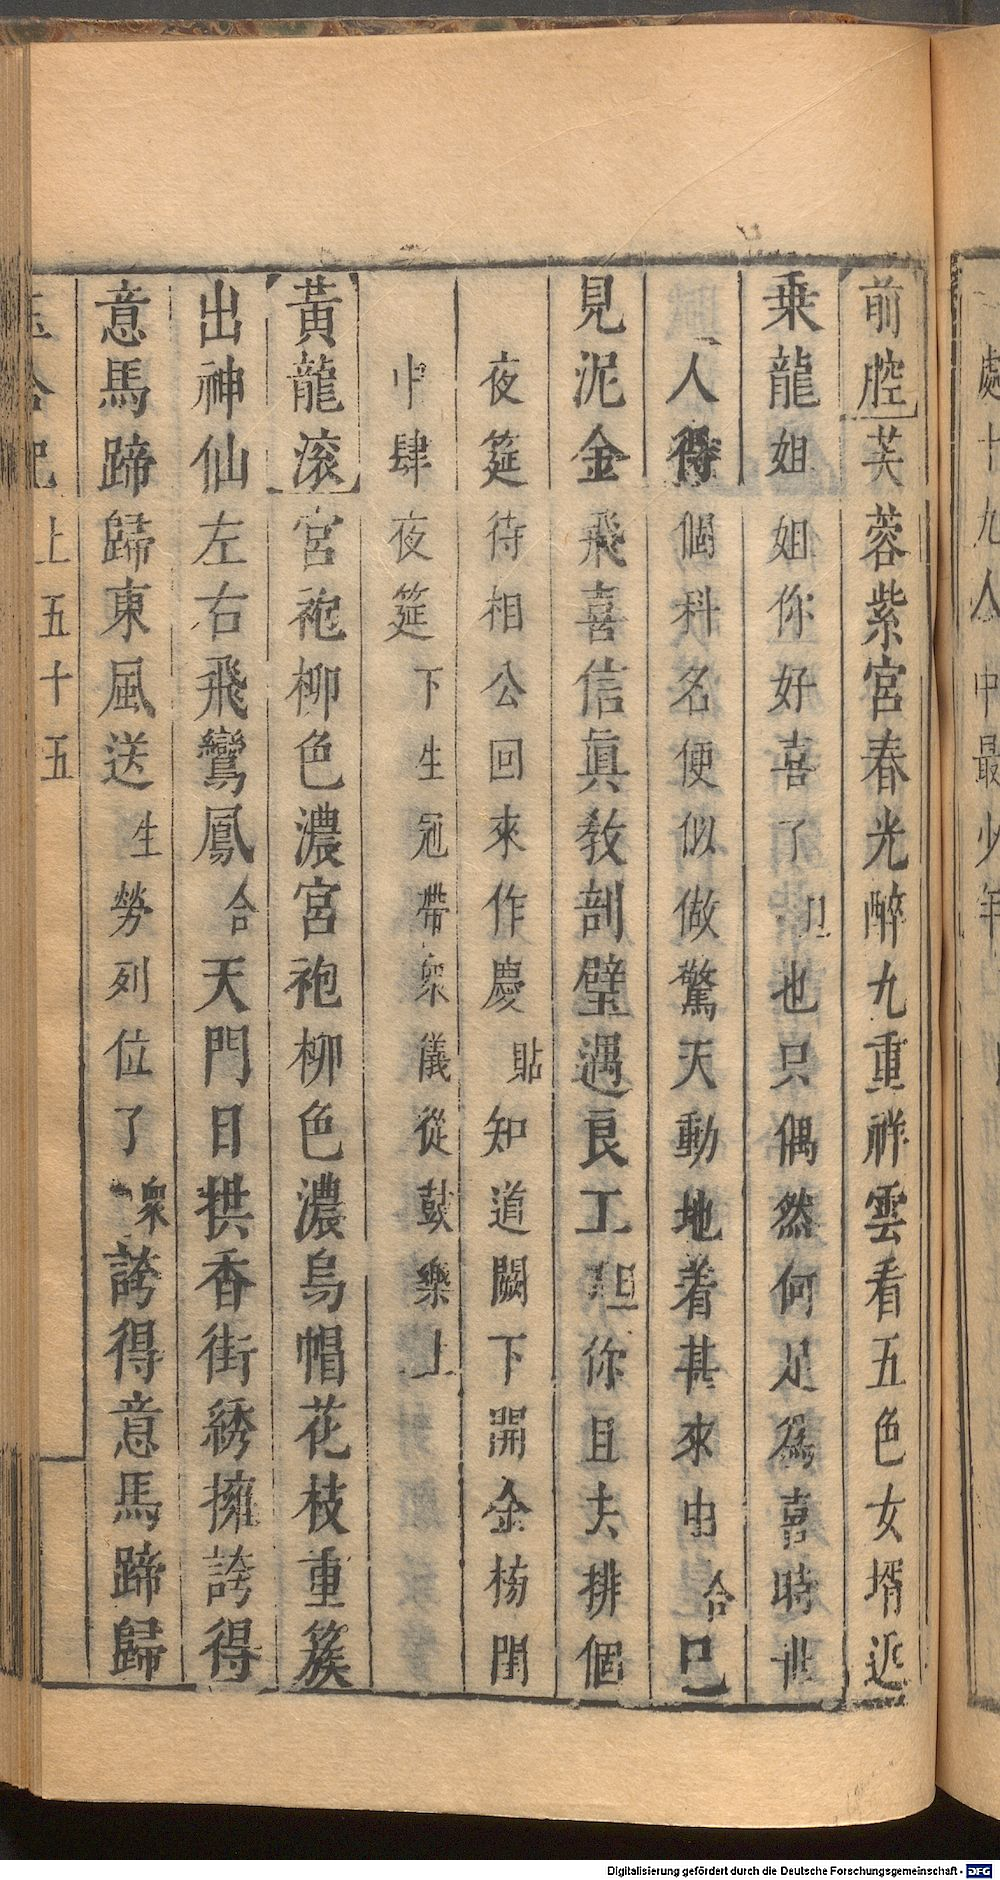 處十九人中最少年
前腔芙蓉紫宮春光醉九重祥雲看五色女壻近
乗龍姐姐你好喜了旦也只偶然何足爲喜時世
人得個科名便似做驚天動地着甚來由合已
見泥金飛喜信眞教剖璧遇良工旦你且夫排個
夜筵待相公回來作慶貼知道闕下開金榜閨
中肆夜筵下生冠帶衆儀從鼓樂上
黃龍滚宮袍柳色濃宮袍柳色濃烏帽花枝重簇
出神仙左右飛鸞鳳合天門日拱香街綉擁誇得
意馬蹄歸東風送生勞列位了衆誇得意馬蹄歸
玉合記上五十五
Digitalisierung gefördert durch die Deutsche Forschungsgemeinschaft - DFG